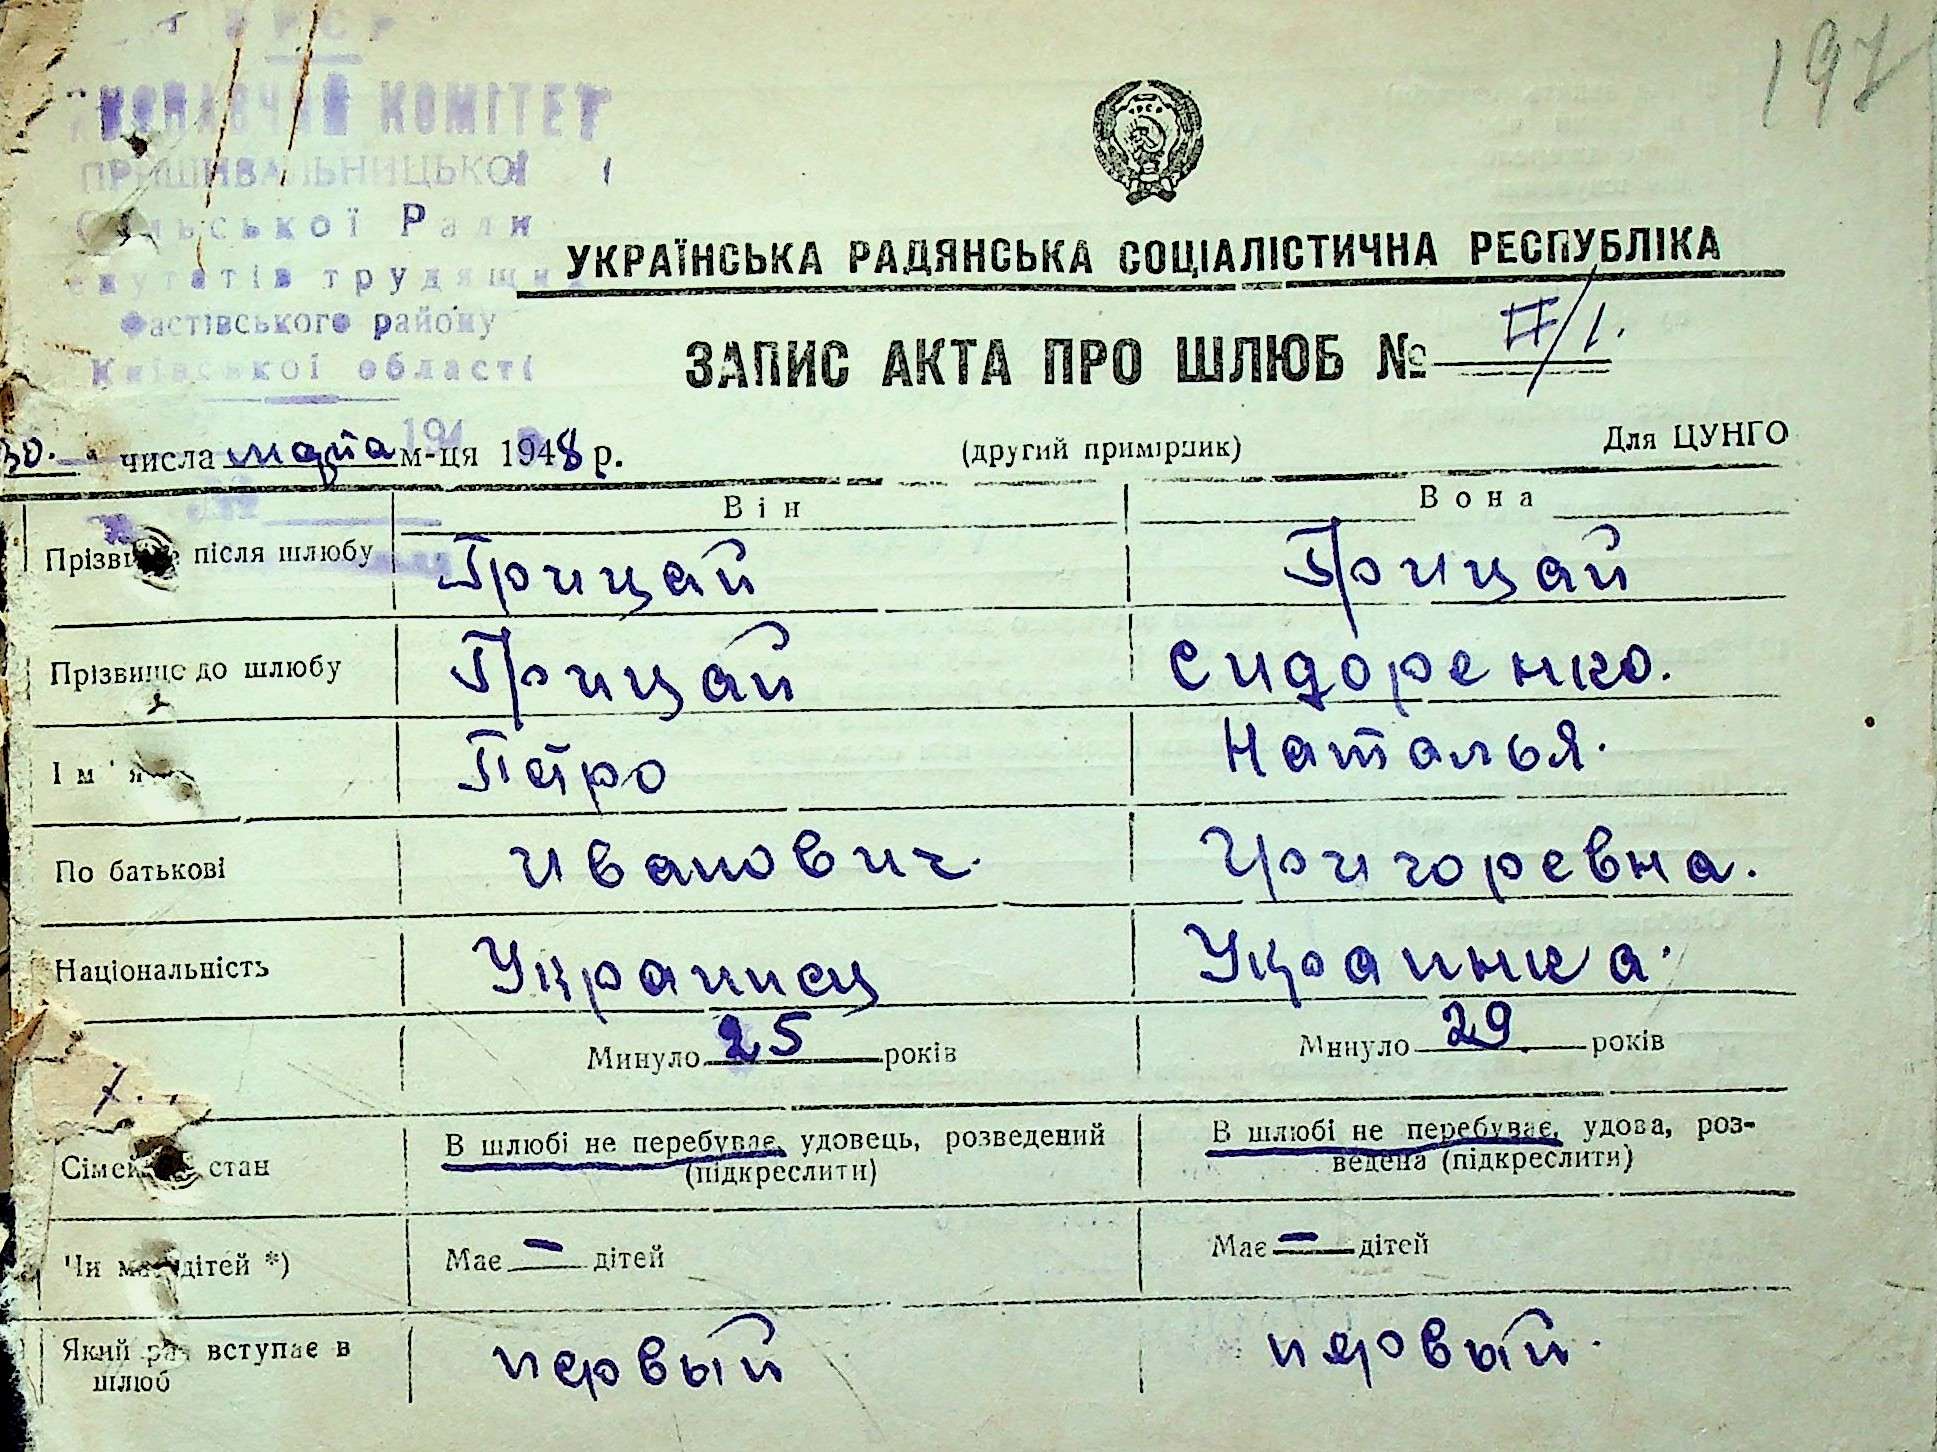 197
ВИКОНАВЧИЙ КОМІТЕТ
ПРИШИВАЛЬНИЦЬКОЇ
Сільської Ради
депутатів трудящих
Фастівського району
Київської області
УКРАЇНСЬКА РАДЯНСЬКА СОЦІАЛІСТИЧНА РЕСПУБЛІКА
ЗАПИС АКТА ПРО ШЛЮБ № II/1.
30. числа марта м-ця 1948 р. (другий примірник) Для ЦУНГО
Він Вона
Прізвище після шлюбу Грицай Грицай
Прізвище до шлюбу Грицай Сидоренко.
Ім'я Петро Наталья.
По батькові Иванович. Григоревна.
Національність Украинец Украинка.
Минуло 25 років Минуло 29 років
Сімейний стан В шлюбі не перебуває, удовець, розведений (підкреслити) В шлюбі не перебуває, удова, роз-
ведена (підкреслити)
Чи має дітей *) Має — дітей Має — дітей
Який раз вступає в шлюб первый первый.